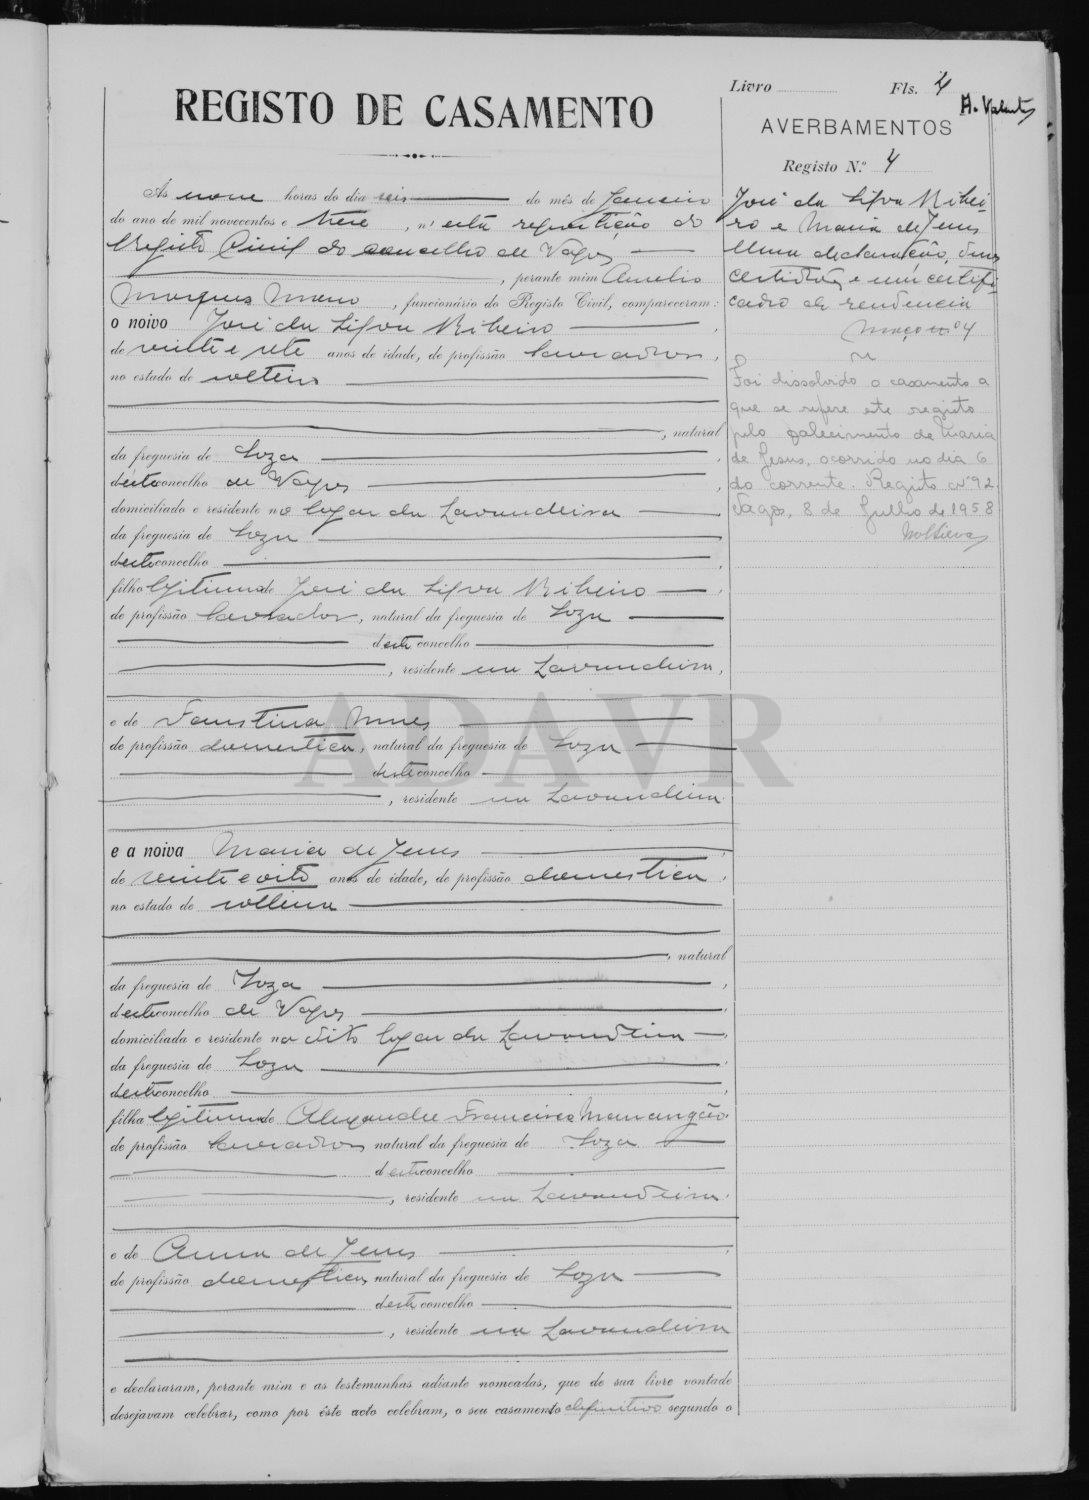 Livro Fls. 4
REGISTO DE CASAMENTO
AVERBAMENTOS
Registo N.º 4
Às nove horas do dia seis do mês de Janeiro
do ano de mil novecentos e treze, n'esta repartição do
Registo Civil do concelho de Vagos
, perante mim Aurelio
Marques Mano, funcionário do Registo Civil, compareceram:
o noivo José da Silva Ribeiro,
de vinte e sete anos de idade, de profissão lavrador,
no estado de solteiro
, natural
da freguesia de Soza,
dêste concelho de Vagos,
domiciliado e residente no lugar da Lavandeira,
da freguesia de Soza,
deste concelho,
filho legitimo de José da Silva Ribeiro,
de profissão lavrador, natural da freguesia de Soza
deste concelho
, residente na Lavandeira,
e de Faustina Nunes
de profissão domestica, natural da freguesia de Soza
deste concelho
, residente na Lavandeira
e a noiva Maria de Jesus,
de vinte e oito anos de idade, de profissão domestica,
no estado de solteira
, natural
da freguesia de Soza,
deste concelho de Vagos,
domiciliada e residente no dito lugar da Lavandeira,
da freguesia de Soza,
deste concelho,
filha legitima de Alexandre Francisco
de profissão lavrador natural da freguesia de Soza
deste concelho
, residente na Lavandeira.
e de Anna de Jesus,
de profissão domestica, natural da freguesia de Soza
deste concelho
, residente na Lavandeira
e declararam, perante mim e as testemunhas adiante nomeadas, que de sua livre vontade
desejavam celebrar, como por êste acto celebram, o seu casamento definitivo segundo o
José da Silva Ribei-
ro e Maria de Jesus
Uma declaração, duas
certidões e um certifi-
cado de residencia
Maço n.º 4
Foi dissolvido o casamento a
que se refere este registo
pelo falecimento de Maria
de Jesus, ocorrido no dia 6
do corrente. Registo nº 92.
Vagos, 8 de Julho de 1958
ADAVR